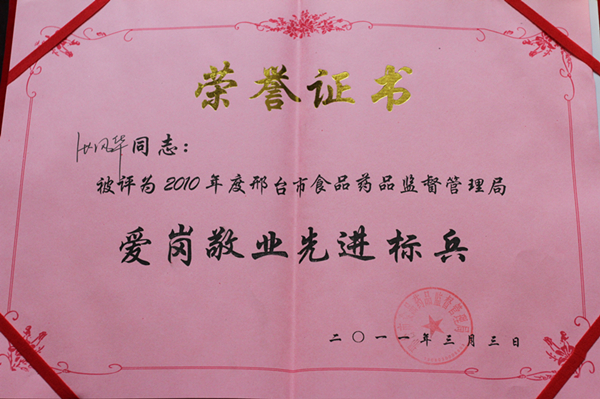 荣誉证书
风华同志：
被评为2010年度邢台市食品药品监督管理局
爱岗敬业先进标兵
食品药品监督管理局
二〇一一年三月三日